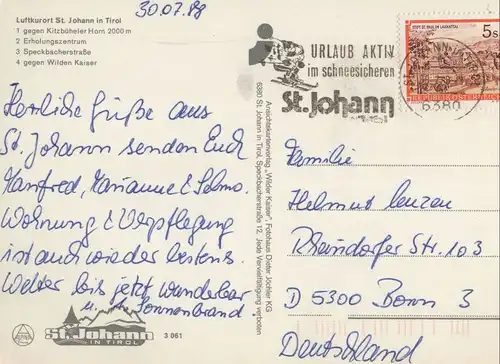 30.07.88
Luftkurort St. Johann in Tirol
1 gegen Kitzbüheler Horn 2000 m
2 Erholungszentrum
3 Speckbacherstraße
4 gegen Wilden Kaiser
Herzliche Grüße aus
St. Johann senden Euch
Manfred, Marianne & Selma.
Wohnung & Verpflegung
ist auch wieder bestens.
Wetter bis jetzt wunderbar
u. Sonnenbrand
St. Johann
IN TIROL
3 061
Ansichtskartenverlag „Wilder Kaiser", Fotohaus Dieter Jöchler KG
6380 St. Johann in Tirol, Speckbacherstraße 12, Jede Vervielfältigung verboten
URLAUB AKTIV
im schneesicheren
St. Johann
in Tirol
STIFT ST. PAUL IM LAVANTTAL
5 S
REPUBLIK ÖSTERREICH
6380
Familie
Helmut Lenzen
Rheindorfer Str. 103
D 5300 Bonn 3
Deutschland